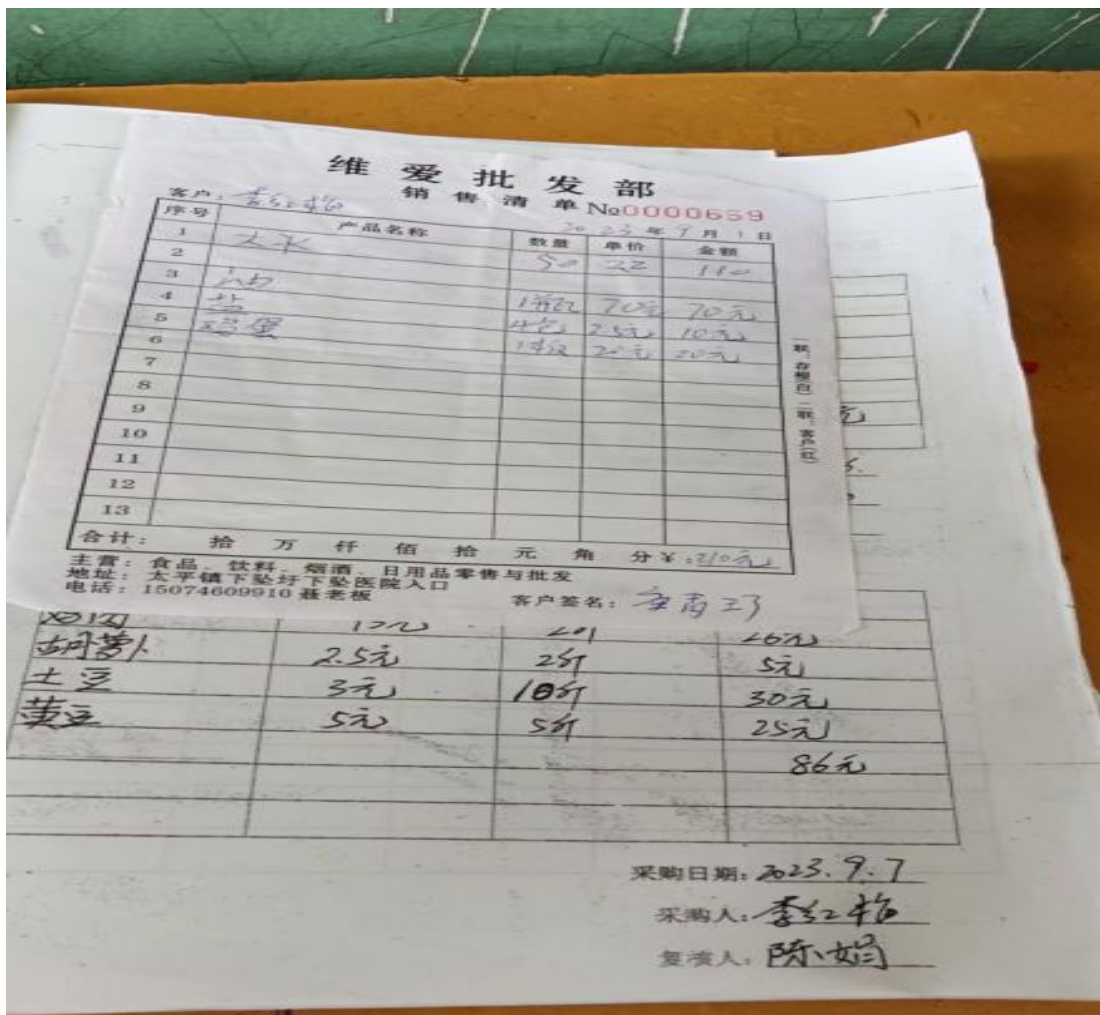 维爱批发部
销售清单 No0000659
客户: 李红梅
2023年9月1日
序号 产品名称 数量 单价 金额
1 大米 50 22 110
2
3 油 1瓶 70元 70元
4 盐 4包 2.5元 10元
5 鸡蛋 1板 20元 20元
6
7
8
9
10
11
12
13
合计: 拾 万 仟 佰 拾 元 角 分 ¥:210元
主营: 食品、饮料、烟酒、日用品零售与批发
地址: 太平镇下坠圩下坠医院入口
电话: 15074609910 聂老板
客户签名:
一联:存根(白) 二联:客户(红)
元
26元
胡萝卜 2.5元 2斤 5元
土豆 3元 10斤 30元
黄豆 5元 5斤 25元
86元
采购日期: 2023.9.7
采购人: 李红梅
复核人: 陈娟